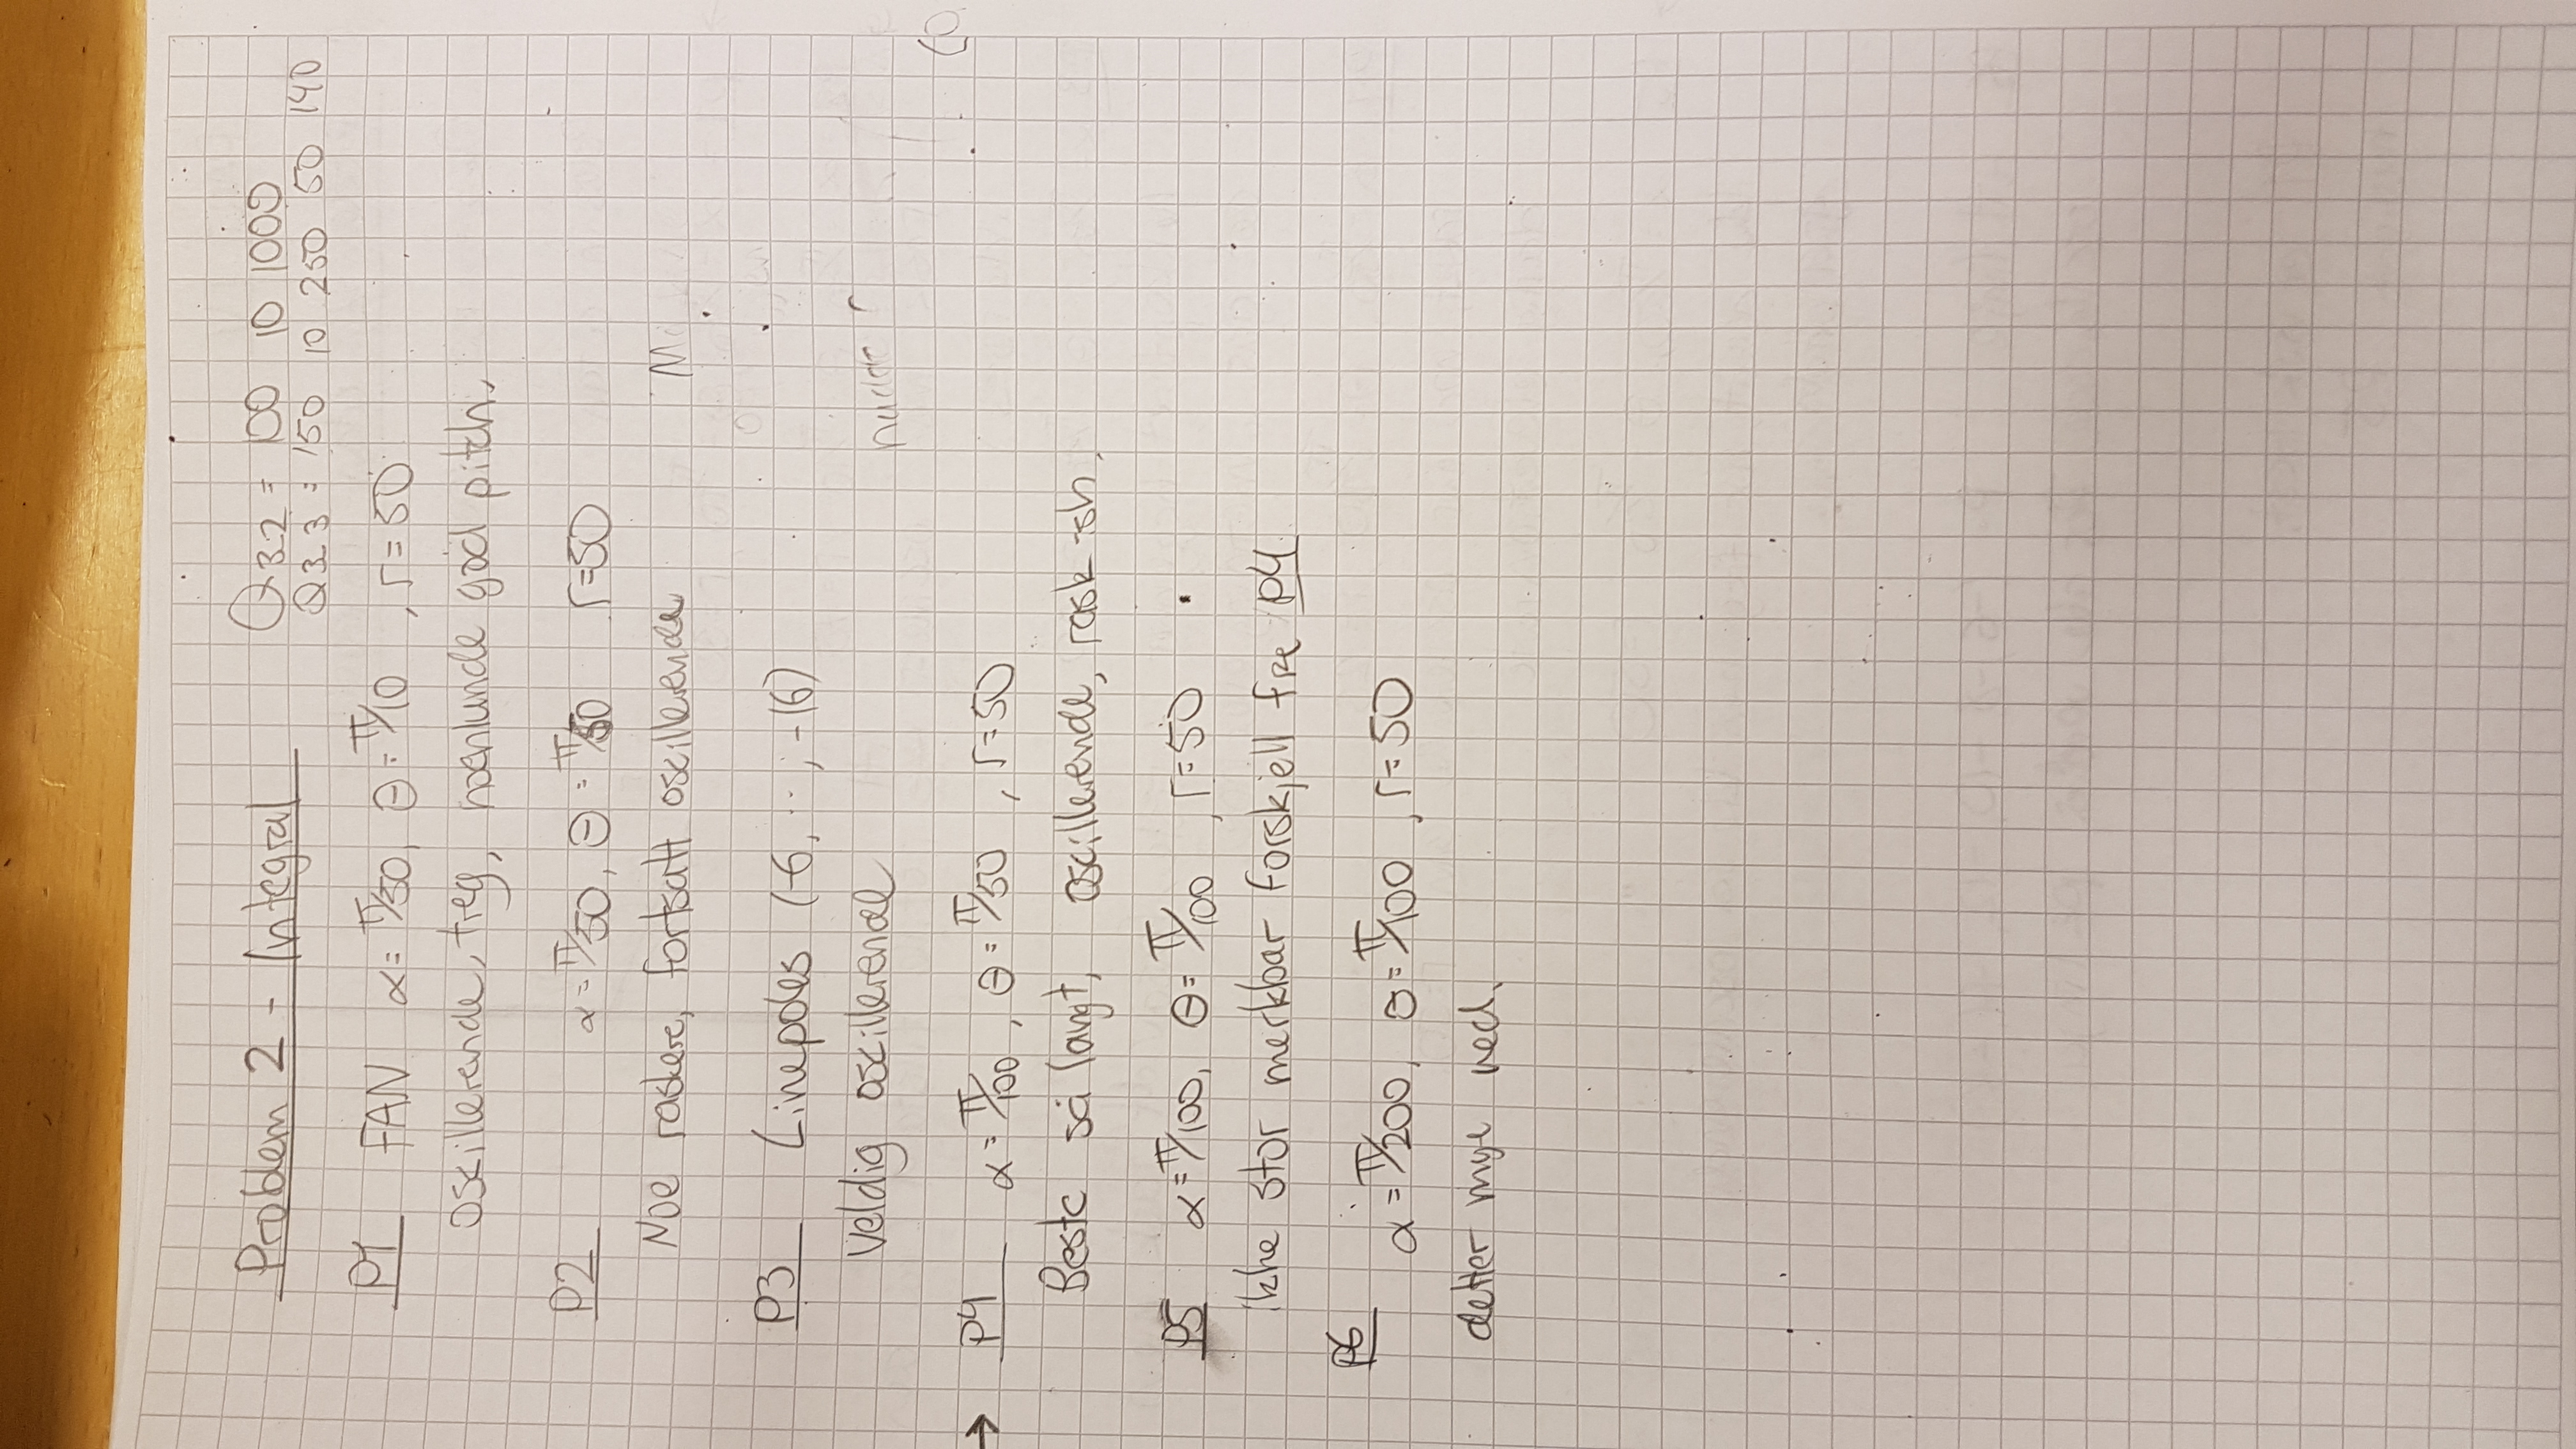 Problem 2 - Integral
Q32 = 100 10 1000
Q33 = 150 10 250 50 140
P1 FAN α = π/50, θ = π/10, r = 50
oscillerende, treg, noenlunde god pitch.
P2 α = π/50, θ = π/50 r=50
Noe raskere, fortsatt oscillerende
P3 Linepoles (-6, .., -16)
Veldig oscillerende
→ P4 α = π/100, θ = π/50, r=50
Beste så langt, oscillerende, rask-ish.
P5 α = π/100, θ = π/100, r=50
Ikke stor merkbar forskjell fra P4
P6
α = π/200, θ = π/100, r=50
detter mye ned.